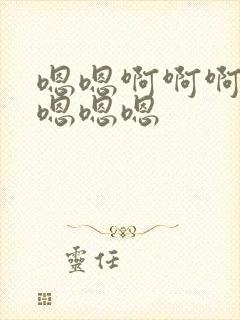 嗯嗯啊啊啊
嗯嗯嗯
靈任